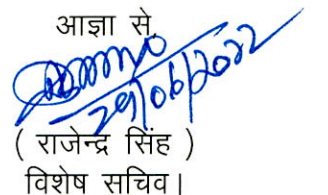 आज्ञा से,
29/06/2022
( राजेन्द्र सिंह )
विशेष सचिव।